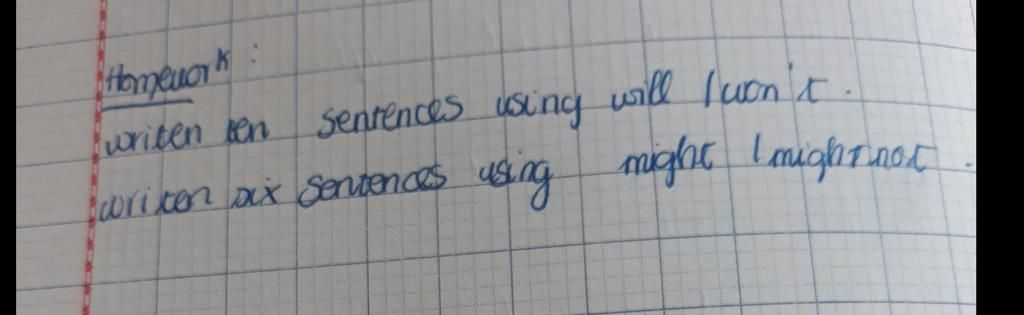 Homework :
writen ten sentences using will / won't .
writen six sentences using might / might not .